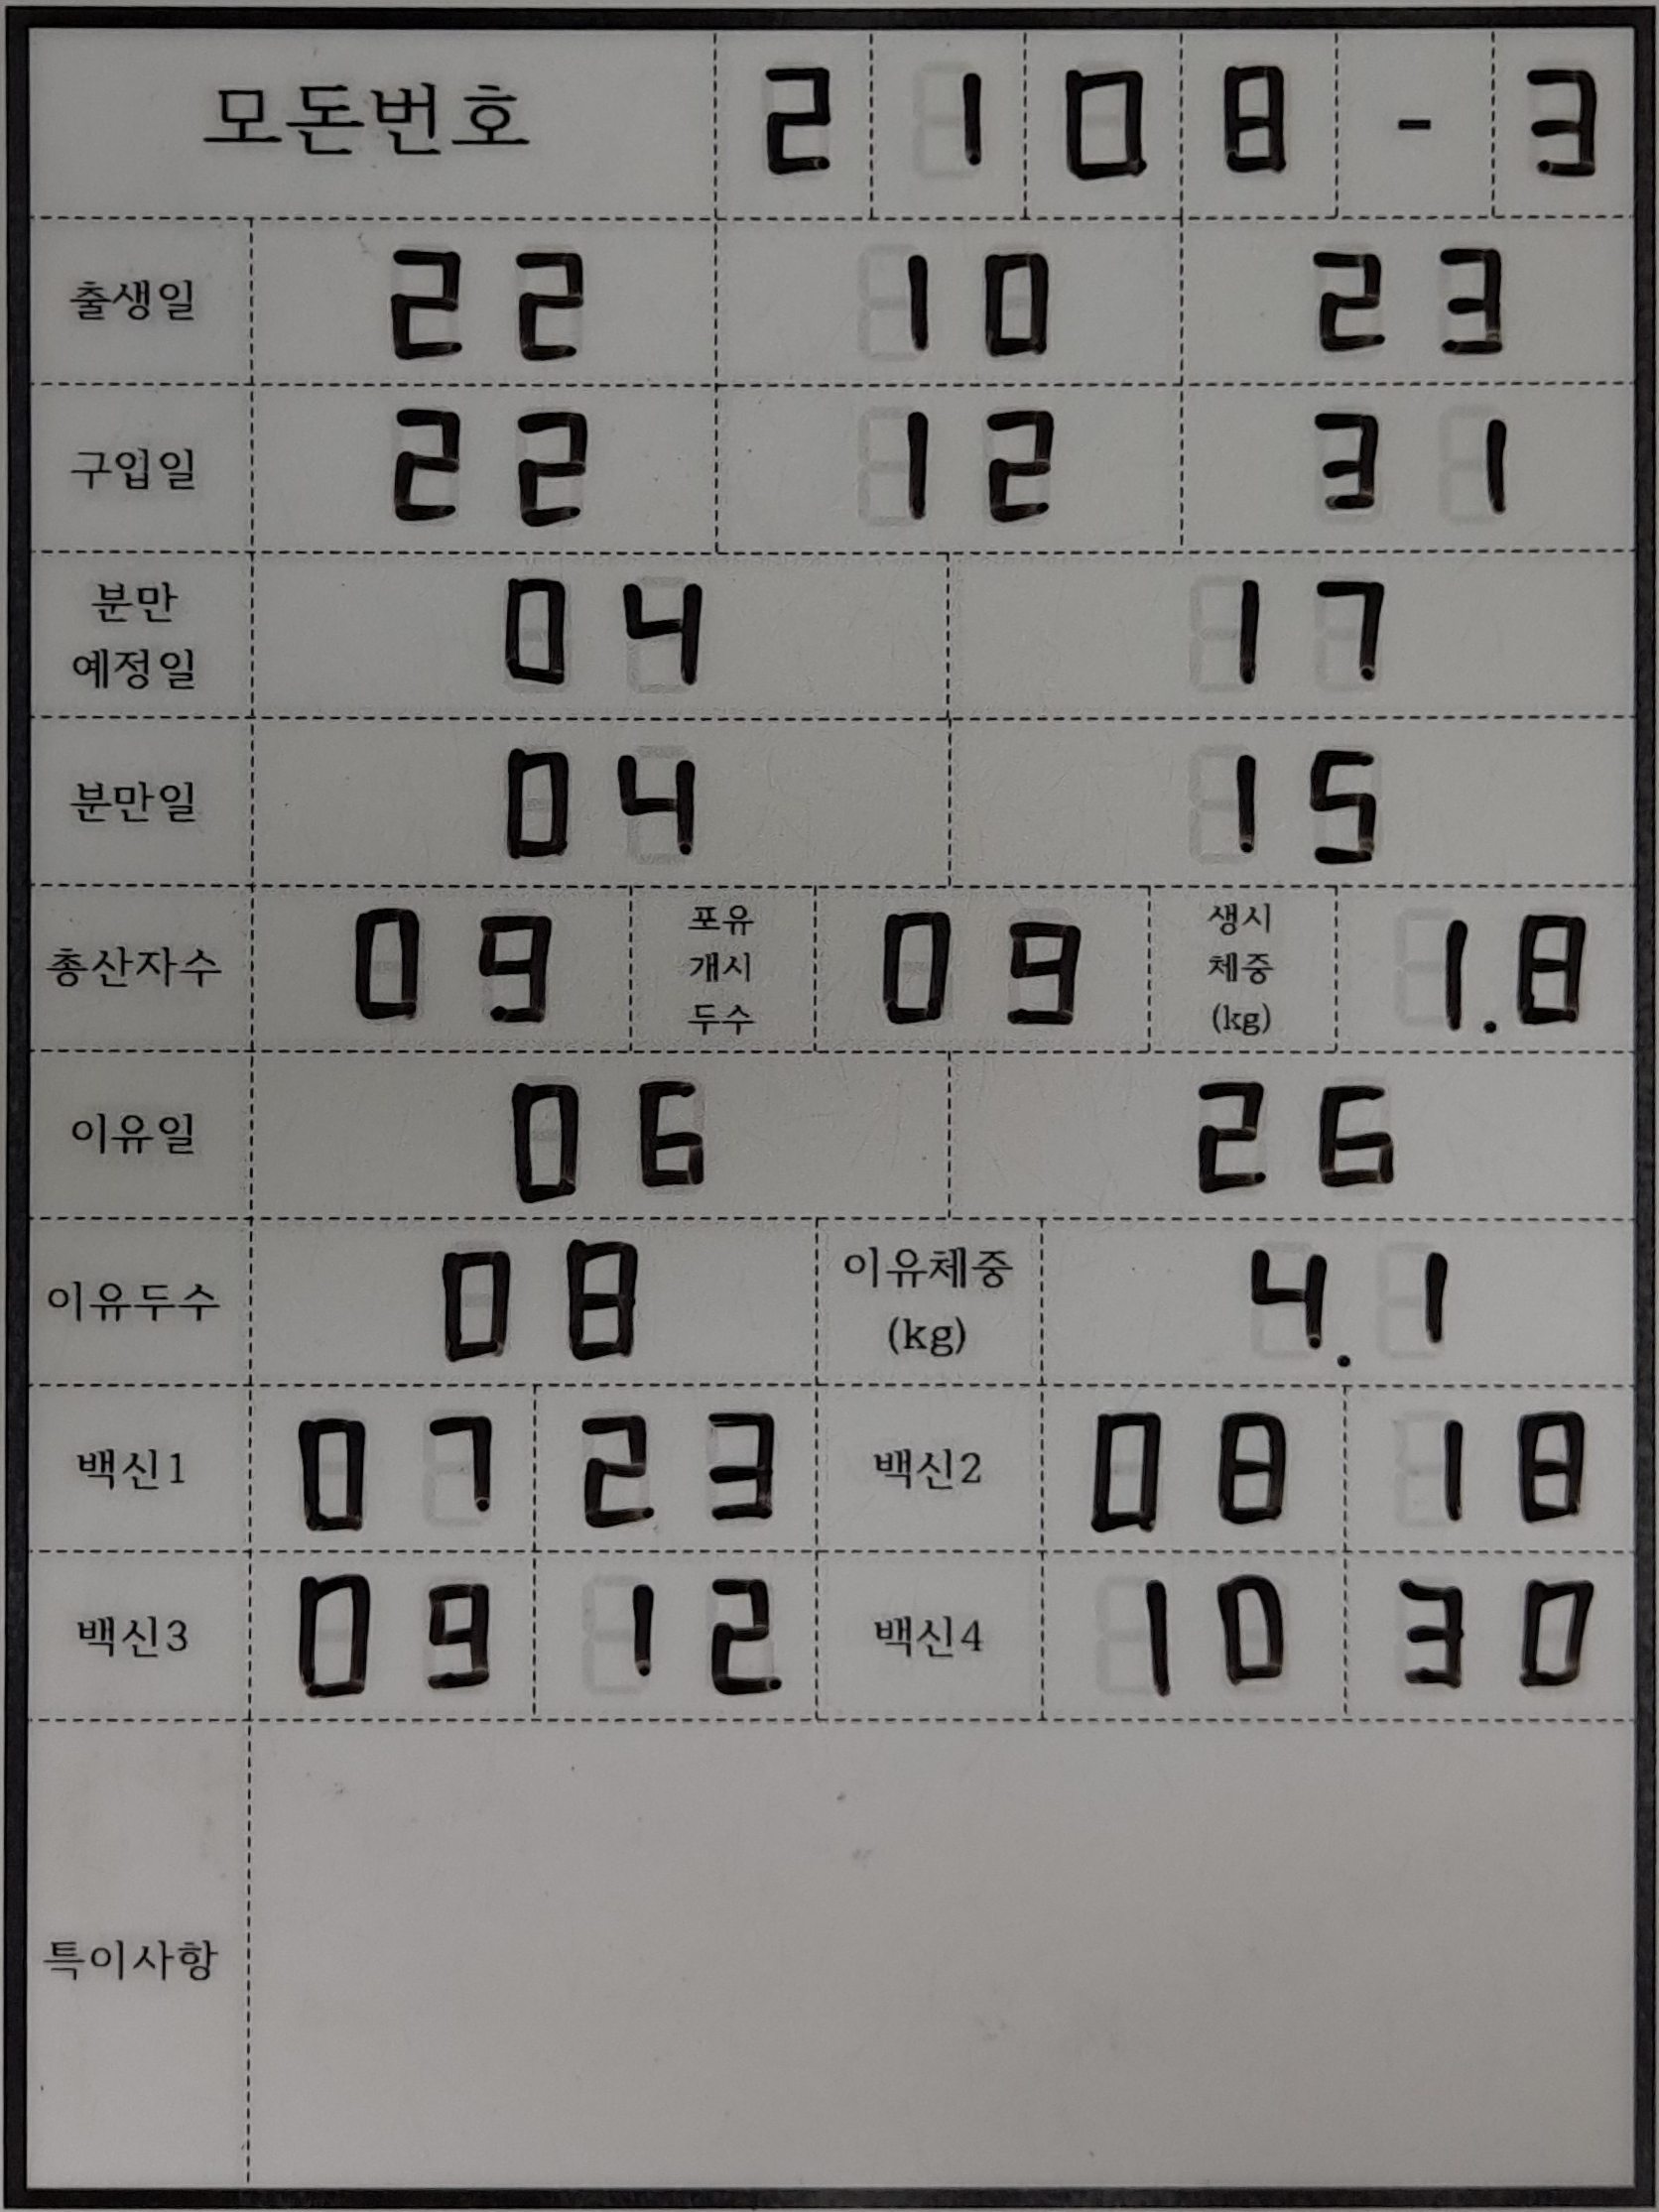 모돈번호 2 1 0 8 - 3
출생일 22 10 23
구입일 22 12 31
분만 예정일 04 17
분만일 04 15
총산자수 09 포유 개시 두수 09 생시 체중 (kg) 1.8
이유일 06 26
이유두수 08 이유체중 (kg) 4.1
백신1 07 23 백신2 08 18
백신3 09 12 백신4 10 30
특이사항